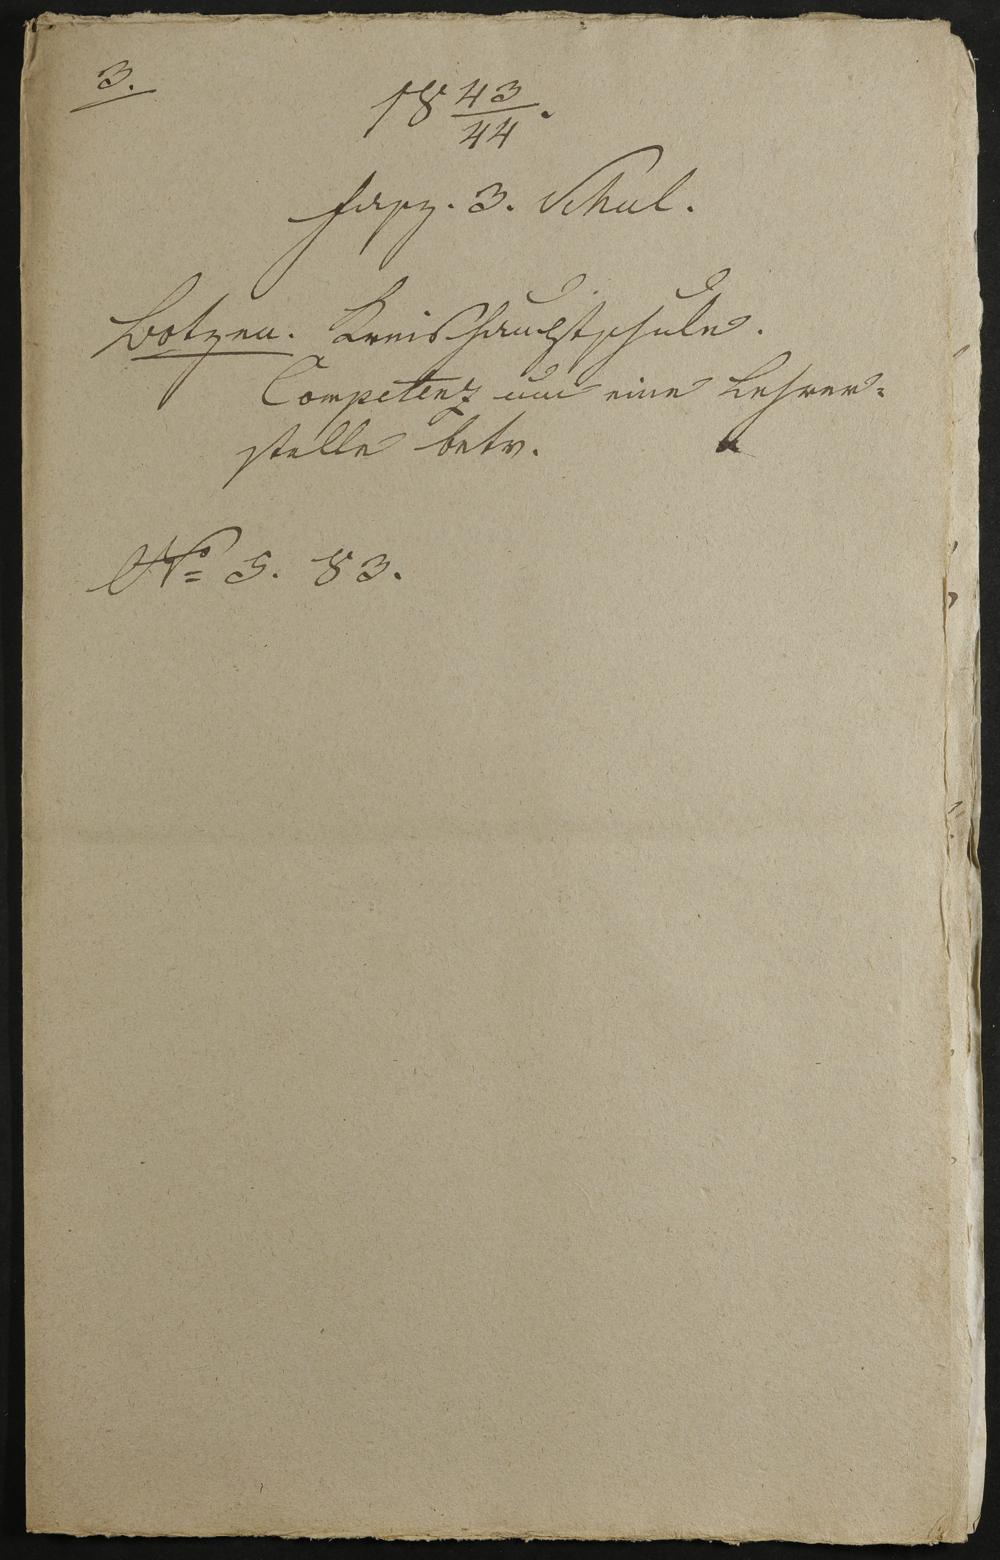 3.
18 43/44.
Fasz. 3. Schul.
Botzen. Kreishauptschule.
Competenz um eine Lehrer=
stelle betr.
No 5. 83.